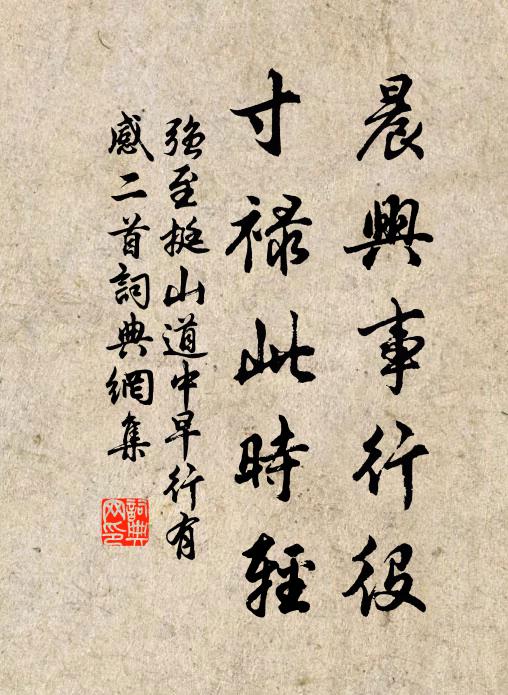 晨興事行役
寸祿此時輕
強至挺山道中早行有
感二首詞典網集
詞典網印